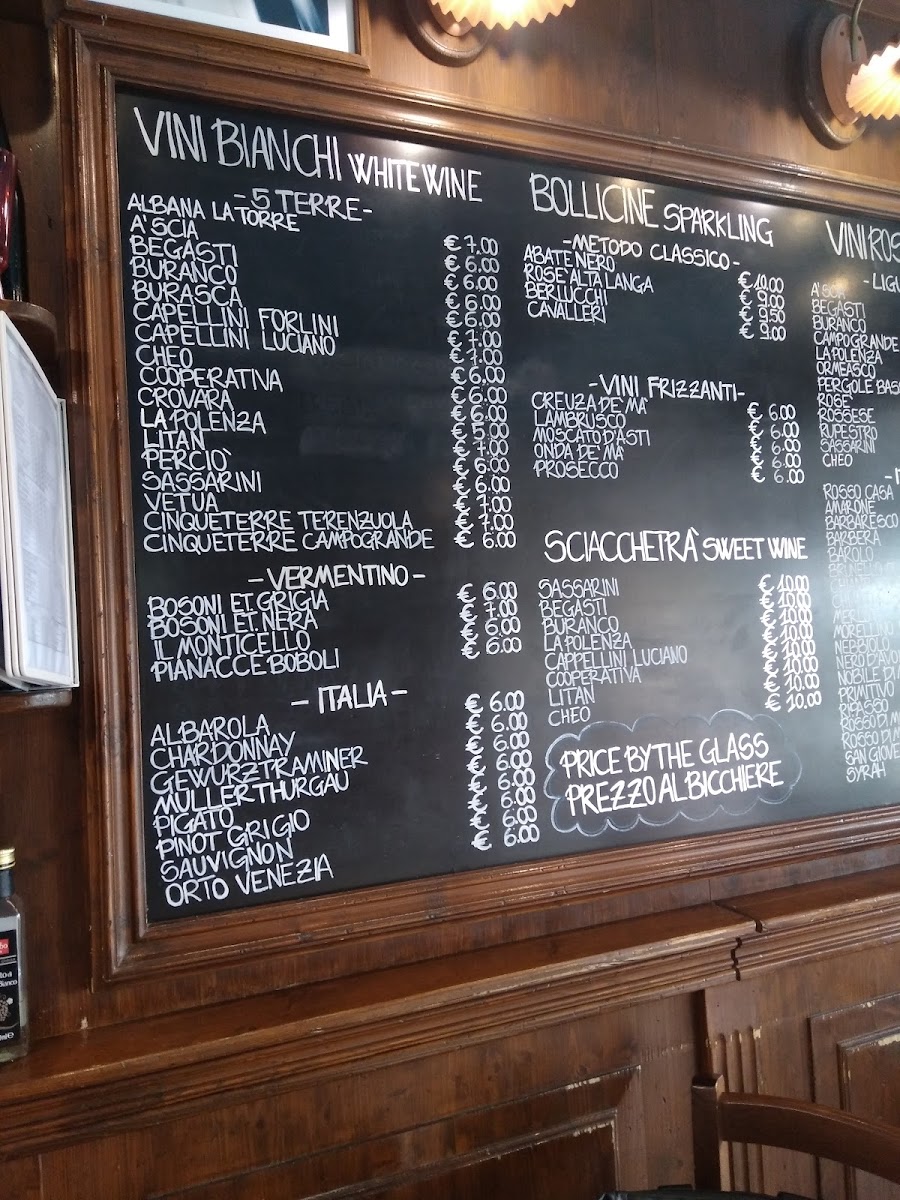 VINI BIANCHI WHITE WINE
-5 TERRE-
ALBANA LA TORRE € 7.00
A'SCIA € 6.00
BEGASTI € 6.00
BURANCO € 6.00
BURASCA € 6.00
CAPELLINI FORLINI € 7.00
CAPELLINI LUCIANO € 7.00
CHEO € 6.00
COOPERATIVA € 6.00
CROVARA € 6.00
LA POLENZA € 5.00
LITAN € 7.00
PERCIÒ € 6.00
SASSARINI € 6.00
VETUA € 7.00
CINQUETERRE TERENZUOLA € 7.00
CINQUETERRE CAMPOGRANDE € 6.00
-VERMENTINO-
BOSONI ET. GRIGIA € 6.00
BOSONI ET. NERA € 7.00
IL MONTICELLO € 6.00
PIANACCE BOBOLI € 6.00
-ITALIA-
ALBAROLA € 6.00
CHARDONNAY € 6.00
GEWURZTRAMINER € 6.00
MULLER THURGAU € 6.00
PIGATO € 6.00
PINOT GRIGIO € 6.00
SAUVIGNON € 6.00
ORTO VENEZIA € 6.00
BOLLICINE SPARKLING
-METODO CLASSICO-
ABATE NERO € 10.00
ROSE' ALTA LANGA € 9.00
BERLUCCHI € 9.50
CAVALLERI € 9.00
-VINI FRIZZANTI-
CREUZA DE MA' € 6.00
LAMBRUSCO € 6.00
MOSCATO D'ASTI € 6.00
ONDA DE MA' € 6.00
PROSECCO € 6.00
SCIACCHETRÀ SWEET WINE
SASSARINI € 10.00
BEGASTI € 10.00
BURANCO € 10.00
LA POLENZA € 10.00
CAPPELLINI LUCIANO € 10.00
COOPERATIVA € 10.00
LITAN € 10.00
CHEO € 10.00
PRICE BY THE GLASS
PREZZO AL BICCHIERE
VINI ROS
-LIGU
A'SCIA
BEGASTI
BURANCO
CAMPOGRANDE
LA POLENZA
ORMEASCO
PERGOLE BAS
ROSE'
ROSSESE
RUPESTRO
SASSARINI
CHEO
ROSSO CASA
AMARONE
BARBARESCO
BARBERA
BAROLO
MORELLINO
NEBBIOLO
NERO D'AVO
NOBILE DI
PRIMITIVO
ROSSO DI M
ROSSO DI M
SAN GIOVE
SYRAH